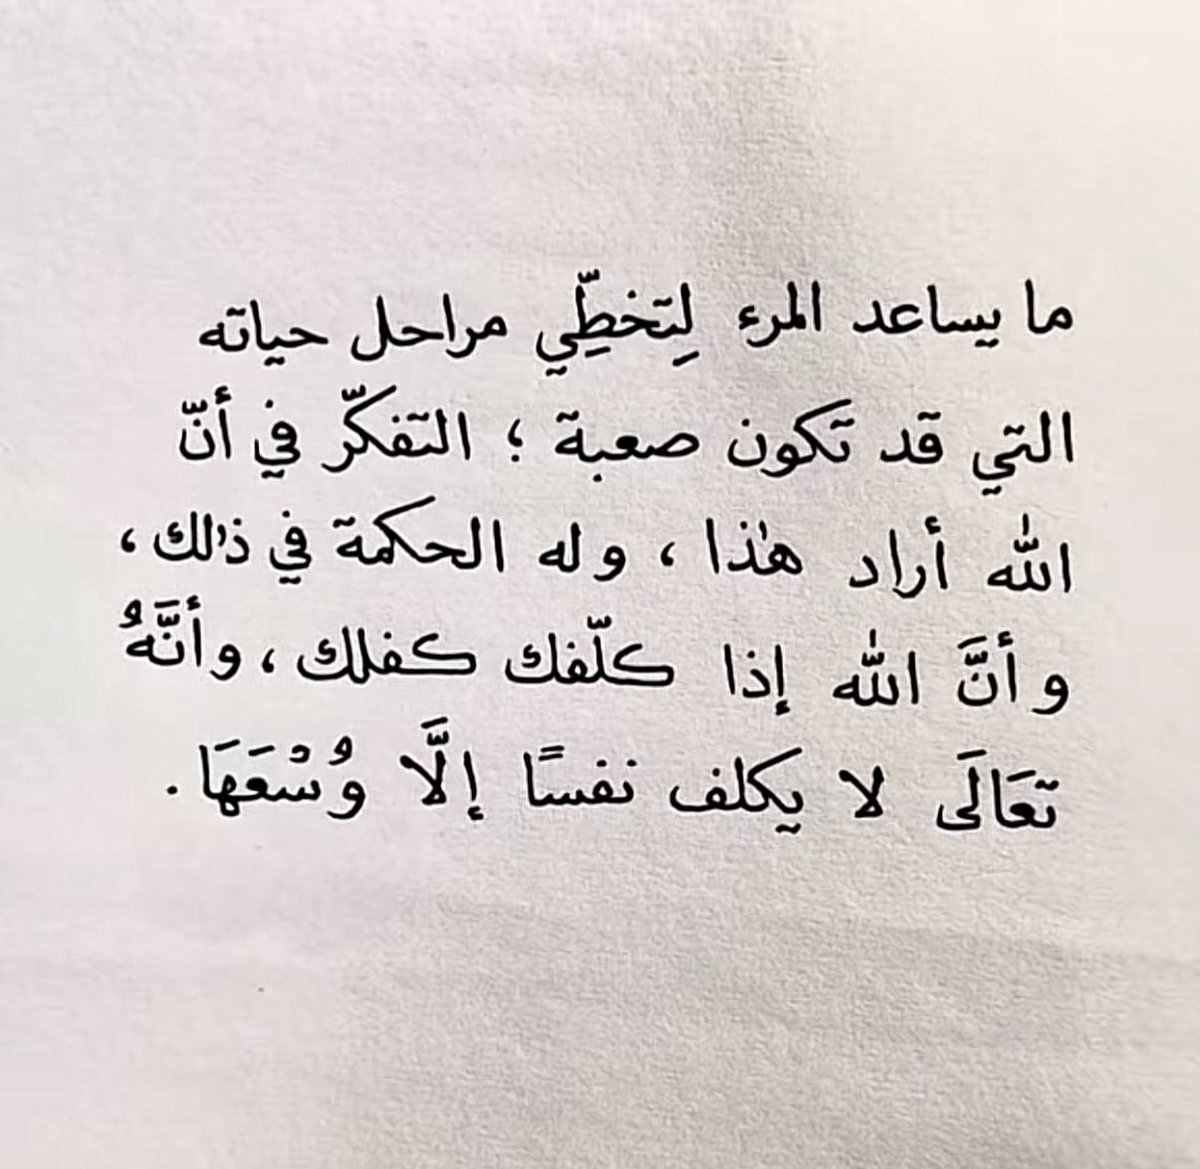 ما يساعد المرء لِتخطِّي مراحل حياته
التي قد تكون صعبة ؛ التفكّر في أنّ
اللّٰه أراد هٰذا ، وله الحكمة في ذٰلك ،
وأنَّ اللّٰه إذا كلّفك كفلك ، وأنَّهُ
تعَالَى لا يكلف نفسًا إلَّا وُسْعَهَا .